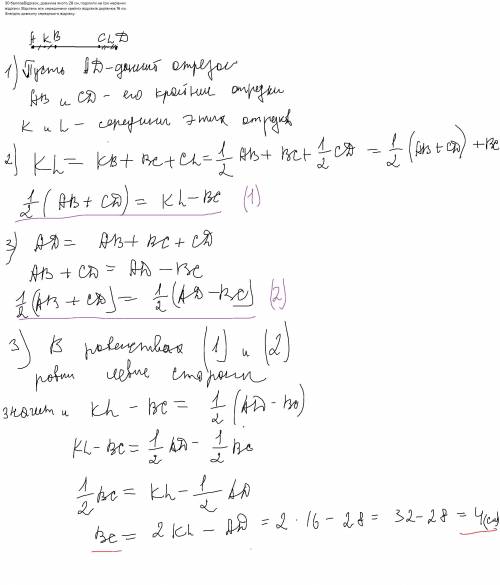 30 баллов Відрізок, довжина якого 28 см, поділили на три нерівних
відрізки. Відстань між серединами крайніх відрізків дорівнює 16 см.
Знайдіть довжину середнього відрізку.
A K B C L D
1) Пусть AD - данный отрезок
AB и CD - его крайние отрезки
K и L - середины этих отрезков
2) KL = KB + BC + CL = 1/2 AB + BC + 1/2 CD = 1/2 (AB + CD) + BC
1/2 (AB + CD) = KL - BC (1)
3) AD = AB + BC + CD
AB + CD = AD - BC
1/2 (AB + CD) = 1/2 (AD - BC) (2)
3) В равенствах (1) и (2)
равны левые стороны
значит и KL - BC = 1/2 (AD - BC)
KL - BC = 1/2 AD - 1/2 BC
1/2 BC = KL - 1/2 AD
BC = 2 KL - AD = 2 · 16 - 28 = 32 - 28 = 4 (см)